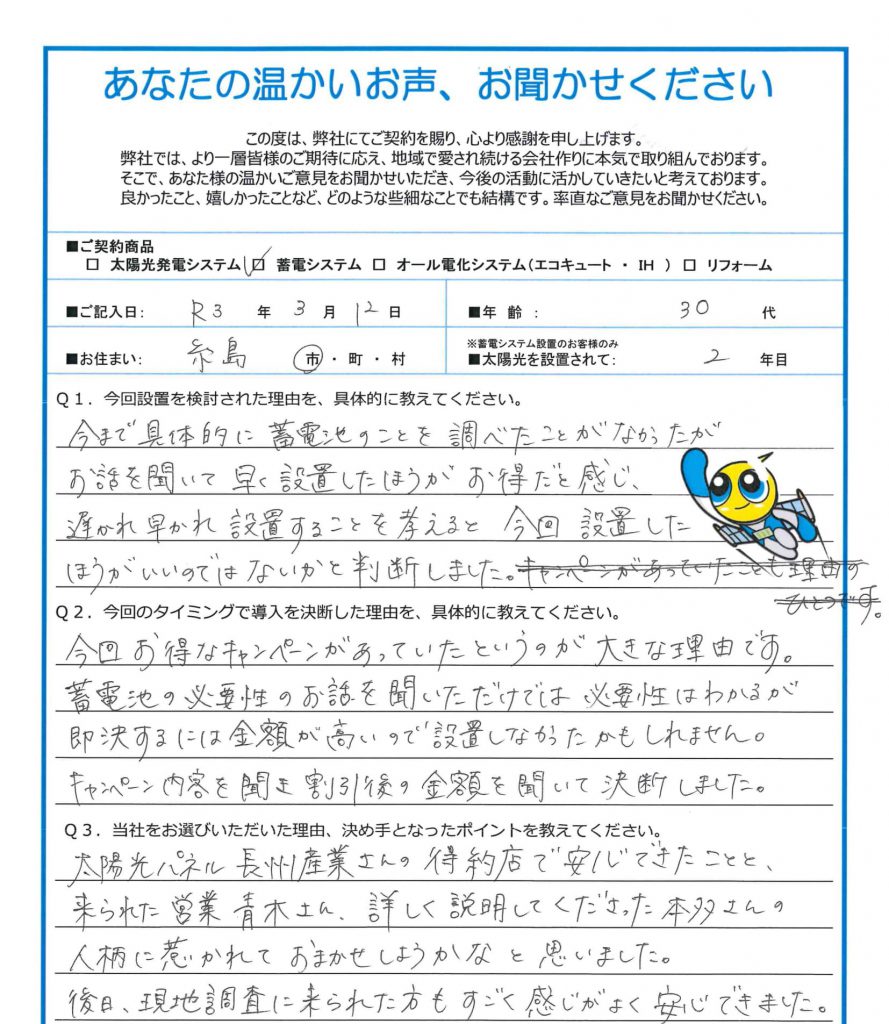 あなたの温かいお声、お聞かせください
この度は、弊社にてご契約を賜り、心より感謝を申し上げます。
弊社では、より一層皆様のご期待に応え、地域で愛され続ける会社作りに本気で取り組んでおります。
そこで、あなた様の温かいご意見をお聞かせいただき、今後の活動に活かしていきたいと考えております。
良かったこと、嬉しかったことなど、どのような些細なことでも結構です。率直なご意見をお聞かせください。
■ご契約商品
□ 太陽光発電システム ☑ 蓄電システム □ オール電化システム(エコキュート ・ IH ) □ リフォーム
■ご記入日: R3 年 3 月 12 日 ■年 齢 : 30 代
■お住まい: 糸島 市・町・村 ※蓄電システム設置のお客様のみ
■太陽光を設置されて: 2 年目
Q1.今回設置を検討された理由を、具体的に教えてください。
今まで具体的に蓄電池のことを調べたことがなかったが
お話を聞いて早く設置したほうがお得だと感じ、
遅かれ早かれ設置することを考えると今回設置した
ほうがいいのではないかと判断しました。キャンペーンがあっていたことも理由の
ひとつです。
Q2.今回のタイミングで導入を決断した理由を、具体的に教えてください。
今回お得なキャンペーンがあっていたというのが大きな理由です。
蓄電池の必要性のお話を聞いただけでは必要性はわかるが
即決するには金額が高いので設置しなかったかもしれません。
キャンペーン内容を聞き割引後の金額を聞いて決断しました。
Q3.当社をお選びいただいた理由、決め手となったポイントを教えてください。
太陽光パネル長州産業さんの得約店で安心できたことと、
来られた営業青木さん、詳しく説明してくださった本多さんの
人柄に惹かれておまかせしようかなと思いました。
後日、現地調査に来られた方もすごく感じがよく安心できました。